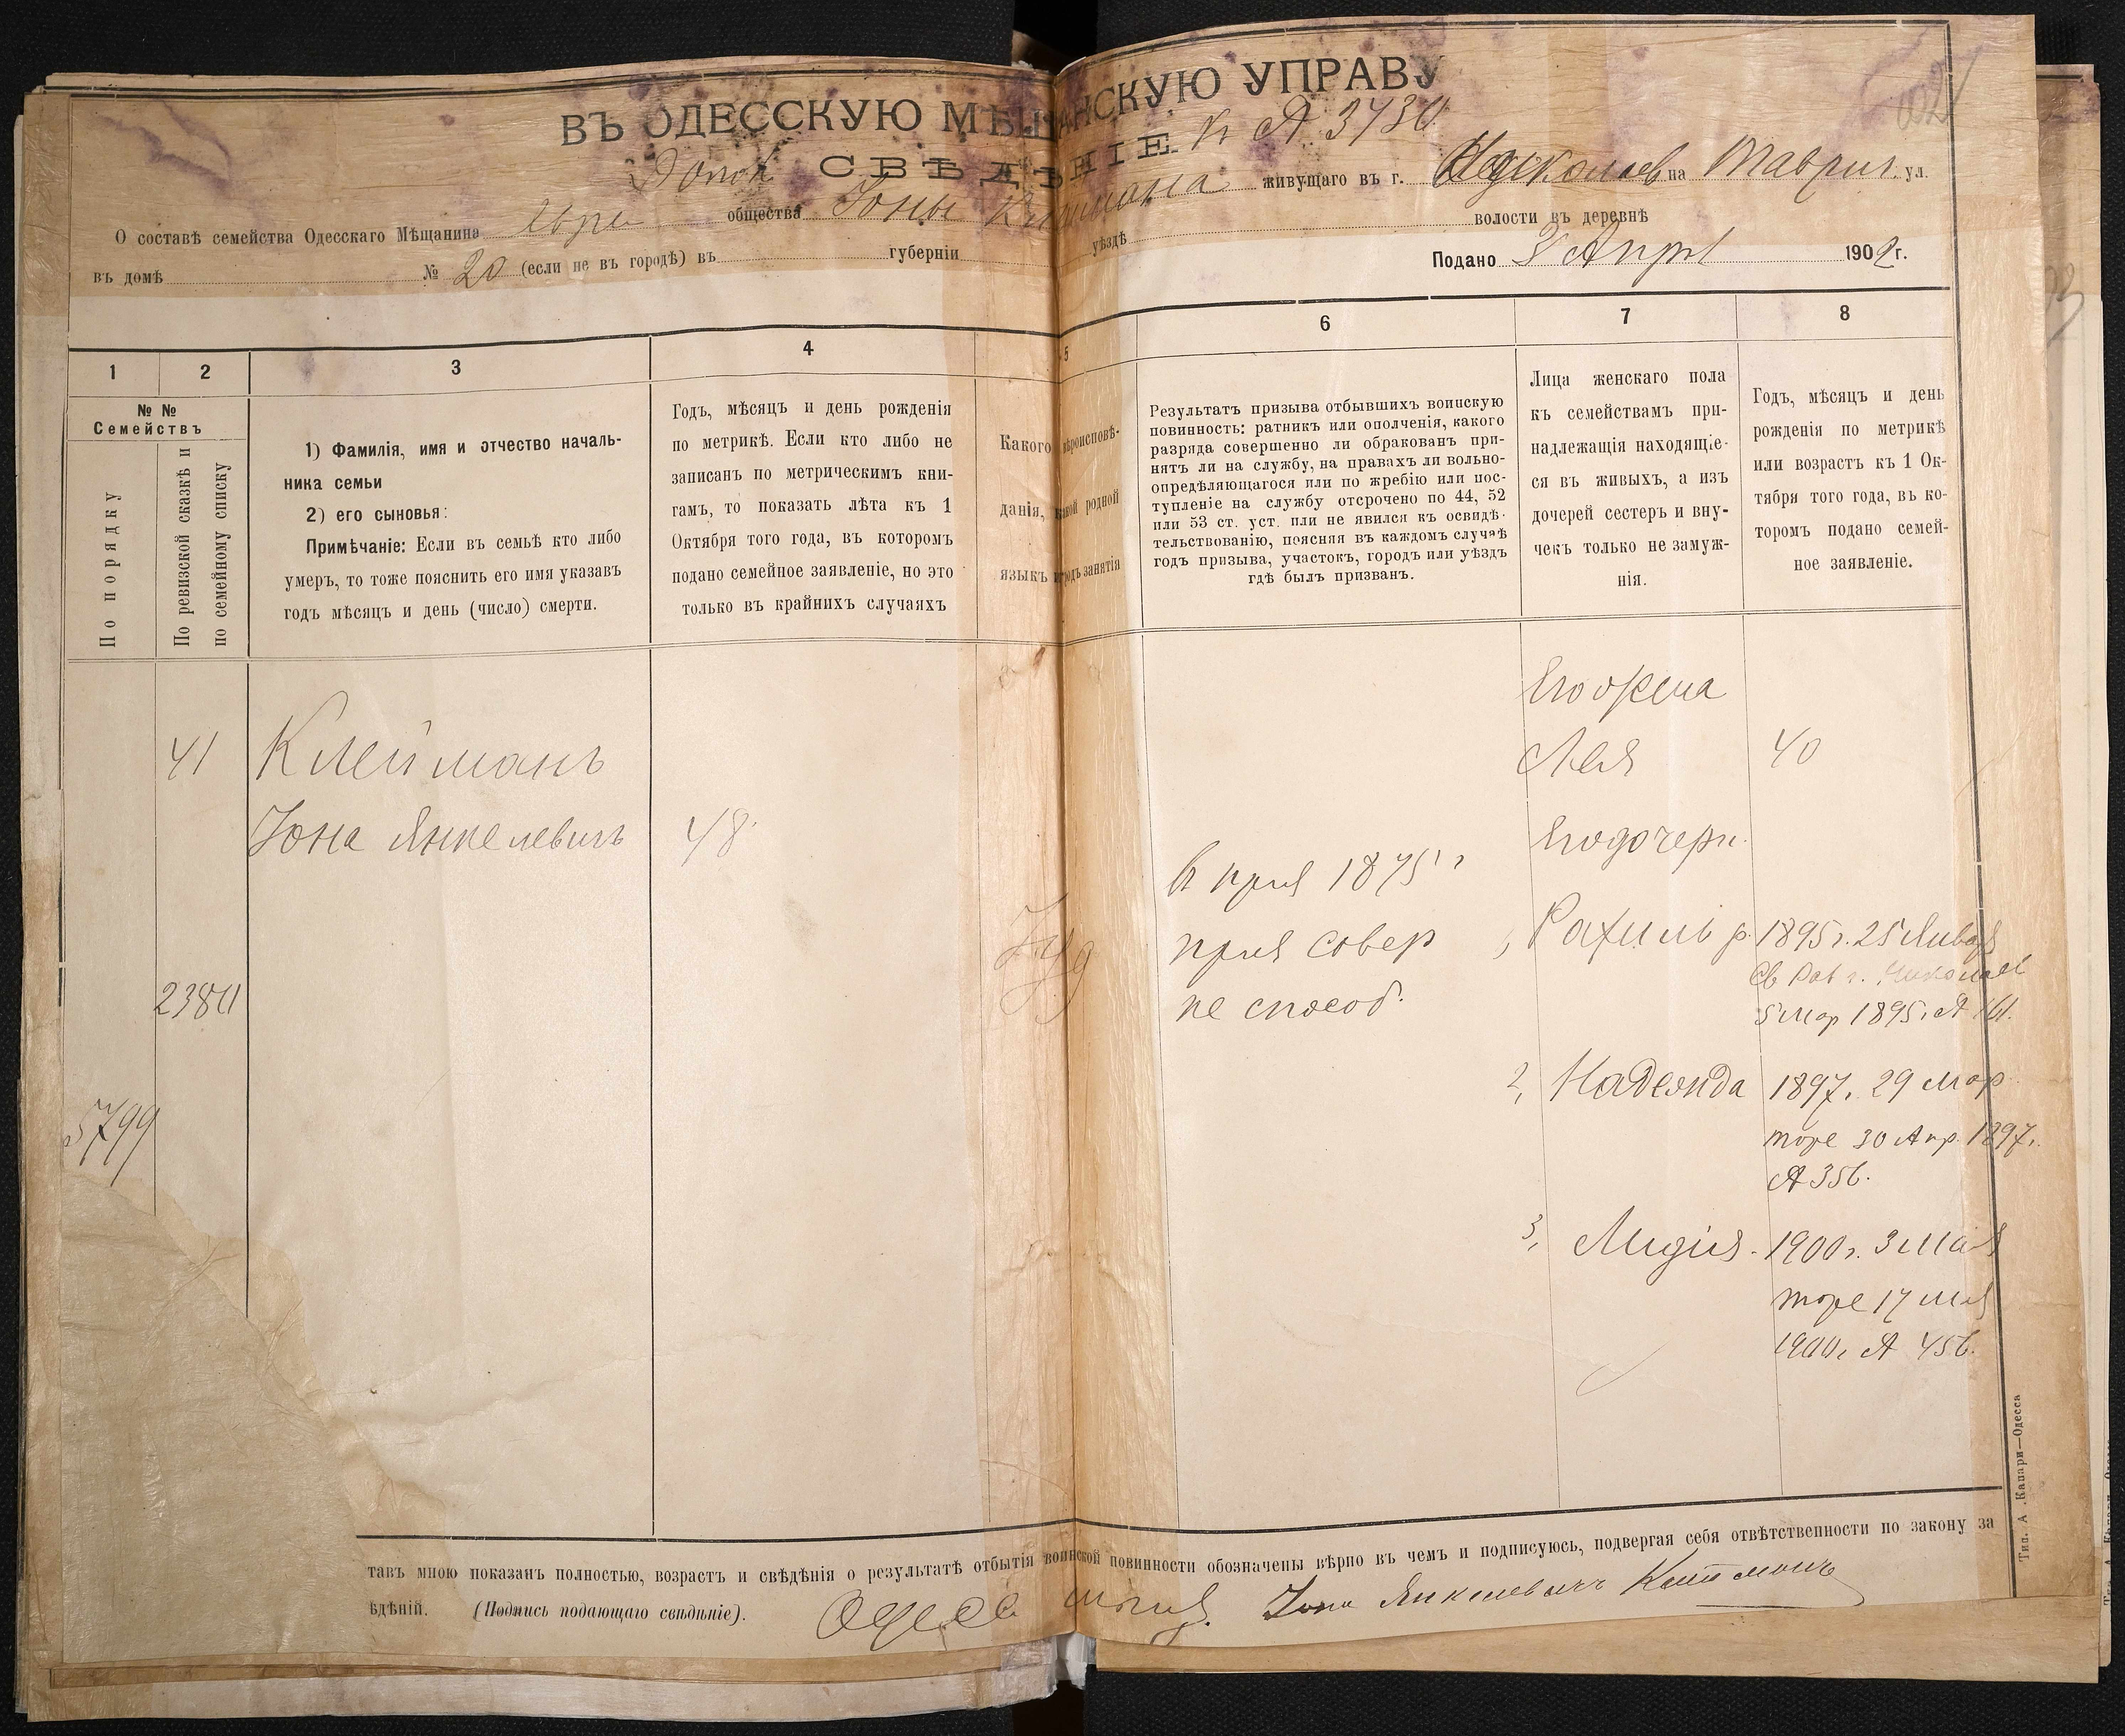 ВЪ ОДЕССКУЮ МѢЩАНСКУЮ УПРАВУ
Допол СВѢДѢНІЕ К № 3730
О составѣ семейства Одесскаго Мѣщанина евре общества Іоны Клеймана живущаго въ г. Николаев на Таврич. ул.
въ домѣ № 20 (если не въ городѣ) въ губерніи уѣздѣ волости въ деревнѣ
Подано 3 Апрл 1902 г.
1 2 3 4 5 6 7 8
№ №
Семействъ
По порядку
По ревизской сказкѣ и
по семейному списку
1) Фамилія, имя и отчество началь-
ника семьи
2) его сыновья:
Примѣчаніе: Если въ семьѣ кто либо
умеръ, то тоже пояснить его имя указавъ
годъ мѣсяцъ и день (число) смерти.
Годъ, мѣсяцъ и день рожденія
по метрикѣ. Если кто либо не
записанъ по метрическимъ кни-
гамъ, то показать лѣта къ 1
Октября того года, въ которомъ
подано семейное заявленіе, но это
только въ крайнихъ случаяхъ
Какого вѣроисповѣ-
данія, какой родной
языкъ и родъ занятія
Результатъ призыва отбывшихъ воинскую
повинность: ратникъ или ополченія, какого
разряда совершенно ли обракованъ при-
нятъ ли на службу, на правахъ ли вольно-
опредѣляющагося или по жребію или пос-
тупленіе на службу отсрочено по 44, 52
или 53 ст. уст. или не явился къ освидѣ-
тельствованію, поясняя въ каждомъ случаѣ
годъ призыва, участокъ, городъ или уѣздъ
гдѣ былъ призванъ.
Лица женскаго пола
къ семействамъ при-
надлежащія находящіе-
ся въ живыхъ, а изъ
дочерей сестеръ и вну-
чекъ только не замуж-
нія.
Годъ, мѣсяцъ и день
рожденія по метрикѣ
или возрастъ къ 1 Ок-
тября того года, въ ко-
торомъ подано семей-
ное заявленіе.
41
2380
5799
Клейманъ
Іона Янкелевичъ
48
Іуд
в приз 1875 г
приз совер
не способ.
Его жена
Лея 40
Его дочери
1, Рахиль р. 1895 г. 25 Января
Св Рав г. Николаев
5 мар 1895 г. № 161.
2, Надежда 1897, 29 мар
тоже 30 Апр. 1897 г.
№ 356.
3, Лидия - 1900 г. 3 Мая
тоже 17 мая
1900 г. № 456.
тавъ мною показанъ полностью, возрастъ и свѣдѣнія о результатѣ отбытія воинской повинности обозначены вѣрно въ чемъ и подписуюсь, подвергая себя отвѣтственности по закону за
ѣдѣній. (Подпись подающаго свѣдѣніе). Одесс мѣщ. Іона Янкелевичъ Клейманъ
Тип. А. Капари—Одесса